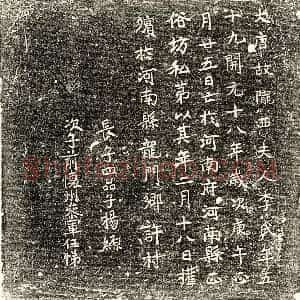 大唐故隴西夫人李氏年五
十九開元十八年歲次庚午正
月廿五日亡於河南府河南縣正
俗坊私第以其年二月十八日權
殯於河南縣龍門鄉許村
長子四品子楊
次子前州參軍仁悌